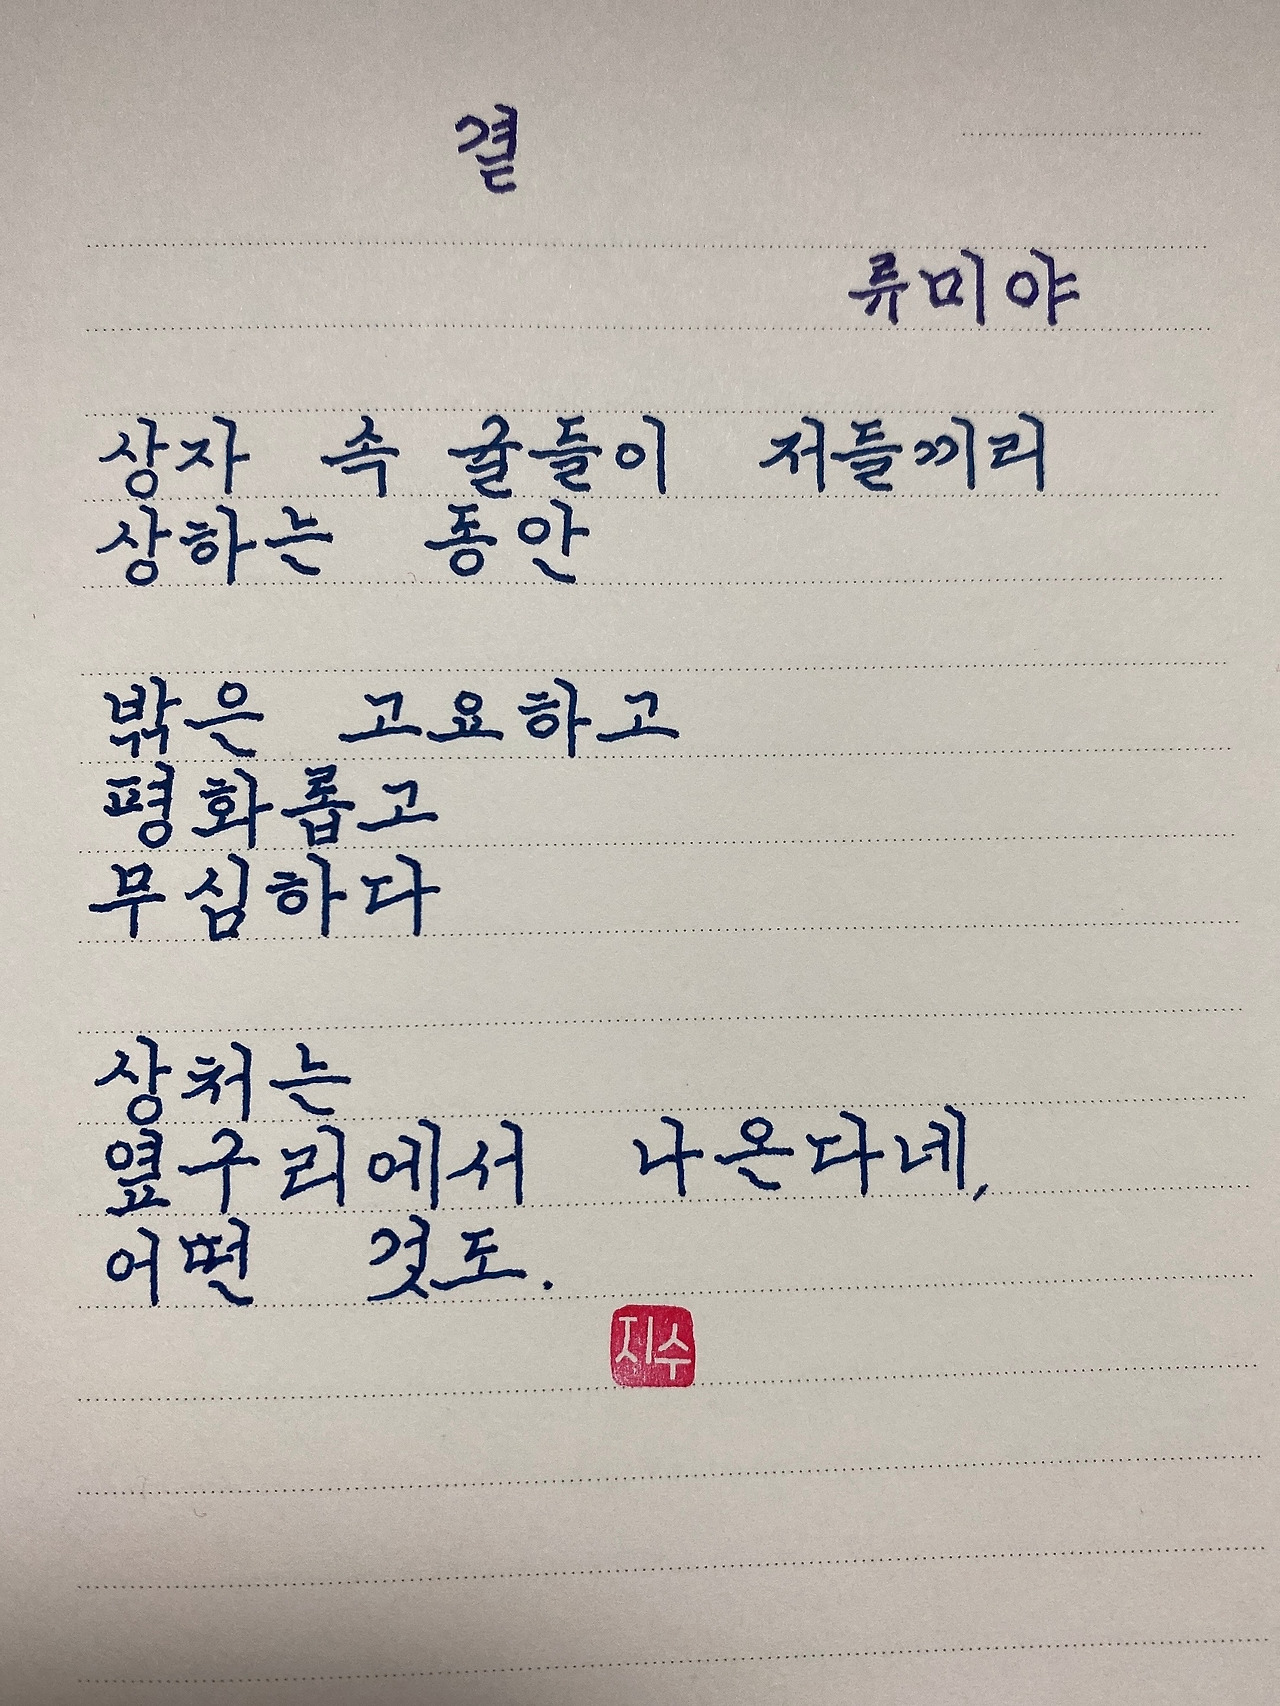 곁
류미야
상자 속 귤들이 저들끼리
상하는 동안
밖은 고요하고
평화롭고
무심하다
상처는
옆구리에서 나온다네,
어떤 것도.
지수